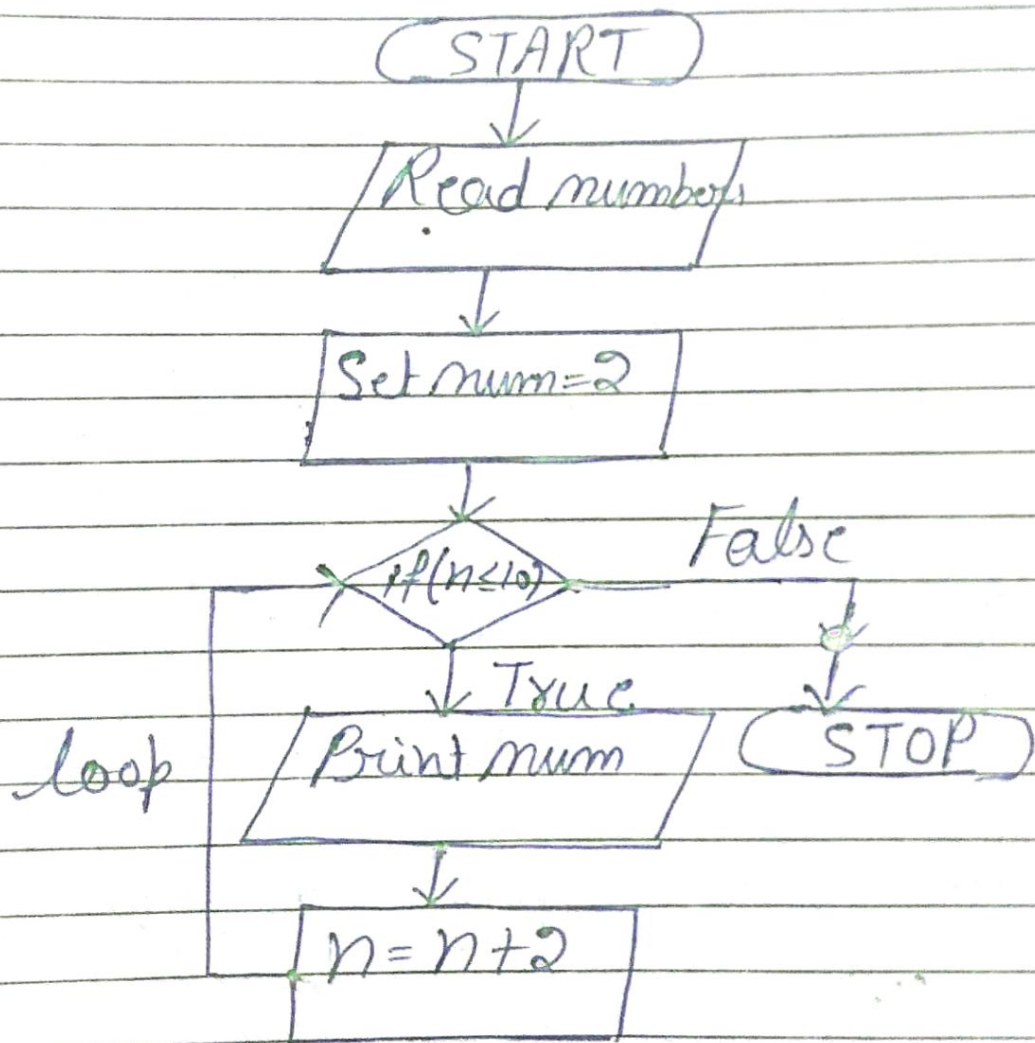 START
Read numbers
Set num=2
if(n≤10)
False
True
loop
Print num
STOP
n=n+2